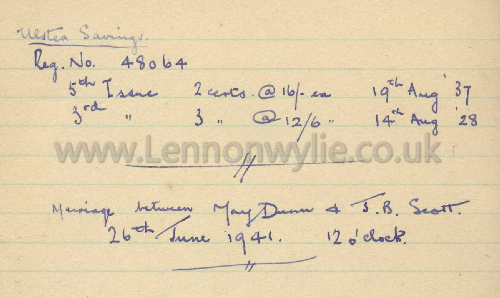 Ulster Savings.
Reg. No. 48064
5th Issue 2 certs. @ 16/- ea 19th Aug '37
3rd " 3 " @ 12/6 " 14th Aug '28
www.Lennonwylie.co.uk
Marriage between May Dunn & J.B. Scott.
26th June 1941. 12 o'clock.